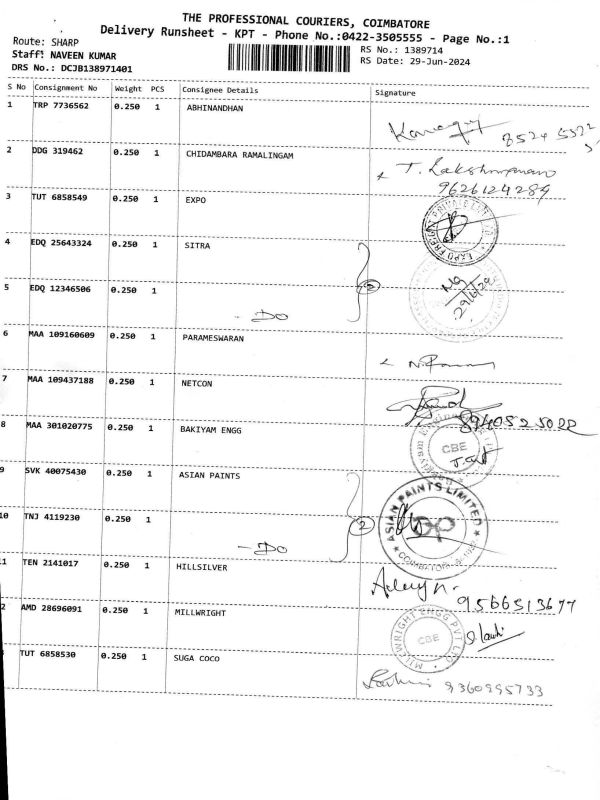 THE PROFESSIONAL COURIERS, COIMBATORE
Delivery Runsheet - KPT - Phone No.:0422-3505555 - Page No.:1
Route: SHARP
Staff: NAVEEN KUMAR
DRS No.: DCJB138971401
RS No.: 1389714
RS Date: 29-Jun-2024
S No Consignment No Weight PCS Consignee Details Signature
1 TRP 7736562 0.250 1 ABHINANDHAN
2 DDG 319462 0.250 1 CHIDAMBARA RAMALINGAM T. Lakshmanan
9626124289
3 TUT 6858549 0.250 1 EXPO
4 EDQ 25643324 0.250 1 SITRA
2
5 EDQ 12346506 0.250 1
- DO
6 MAA 109160609 0.250 1 PARAMESWARAN
7 MAA 109437188 0.250 1 NETCON
8 MAA 301020775 0.250 1 BAKIYAM ENGG
CBE
9 SVK 40075430 0.250 1 ASIAN PAINTS
ASIAN PAINTS LIMITED
2
10 TNJ 4119230 0.250 1
- DO
11 TEN 2141017 0.250 1 HILLSILVER
9566513677
2 AMD 28696091 0.250 1 MILLWRIGHT
MILLWRIGHT ENGG PVT LTD
CBE
TUT 6858530 0.250 1 SUGA COCO
9360995733